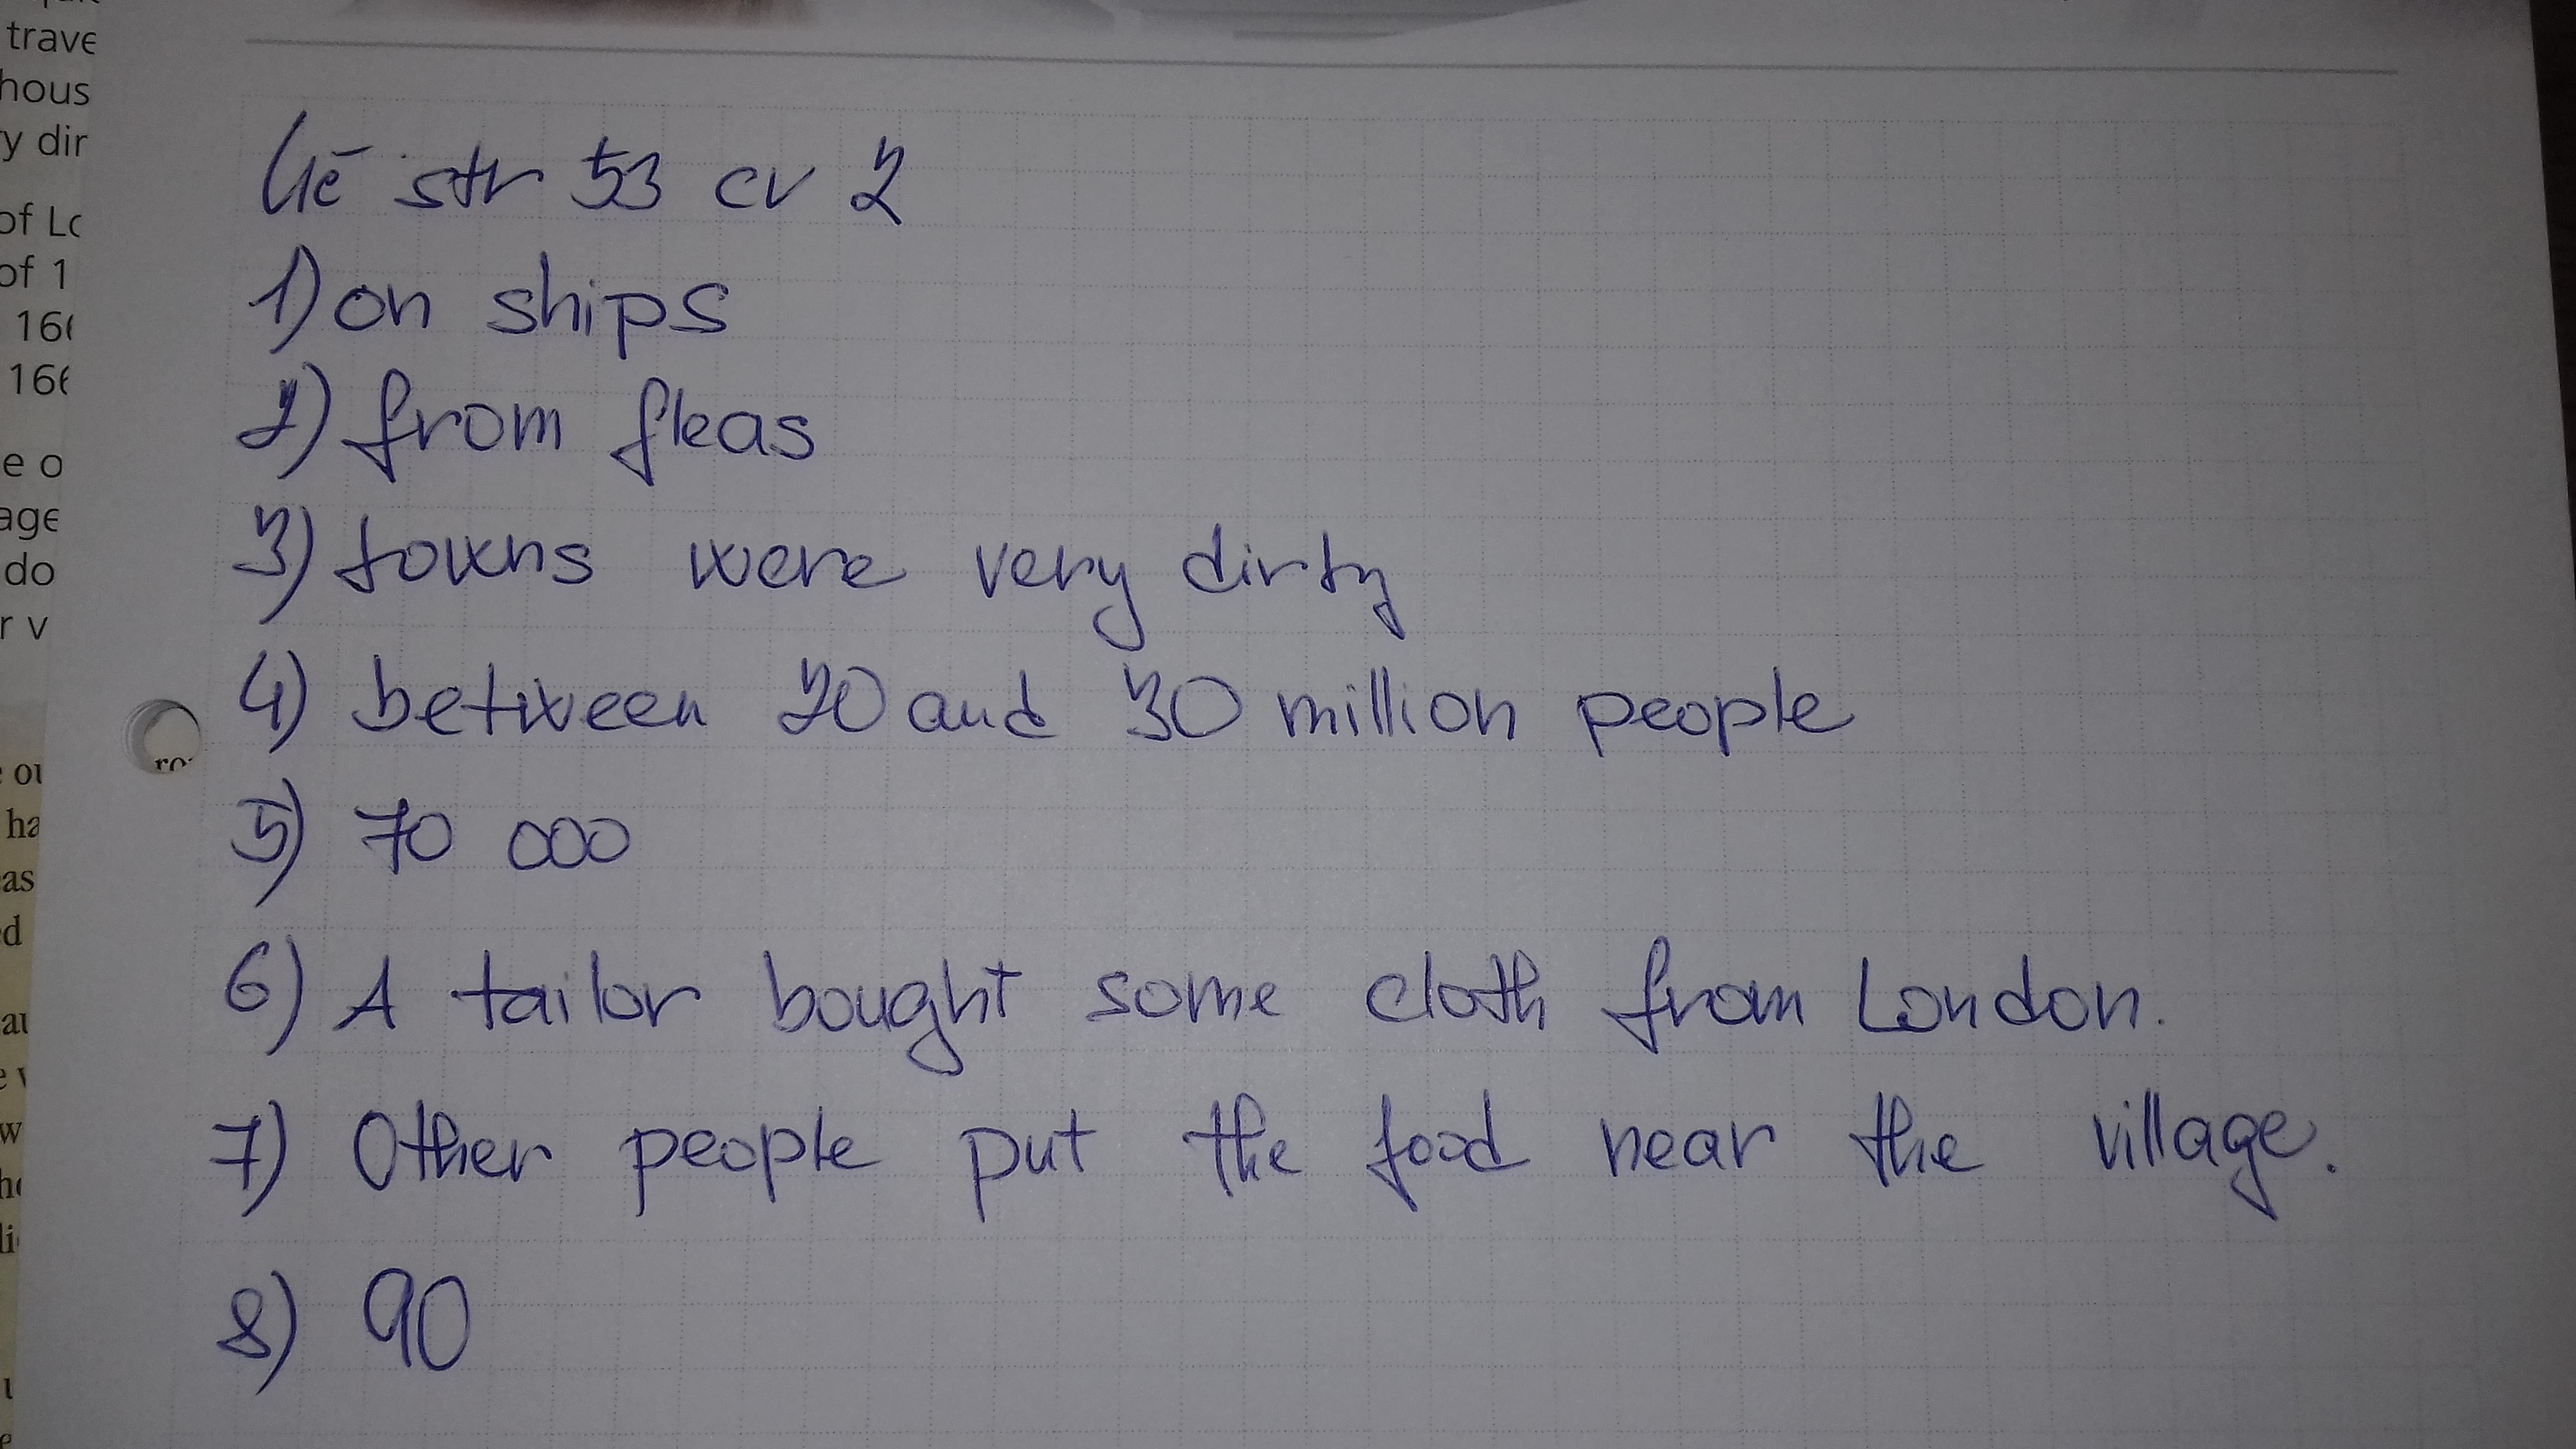 trave
hous
y dir
of Lo
of 1
166
166
e o
age
do
r v
ou
ha
eas
ed
au
e v
w
li
Uč str 53 cv 2
1) on ships
2) from fleas
3) towns were very dirty
4) between 20 and 30 million people
5) 70 000
6) A tailor bought some cloth from London.
7) Other people put the food near the village.
8) 90